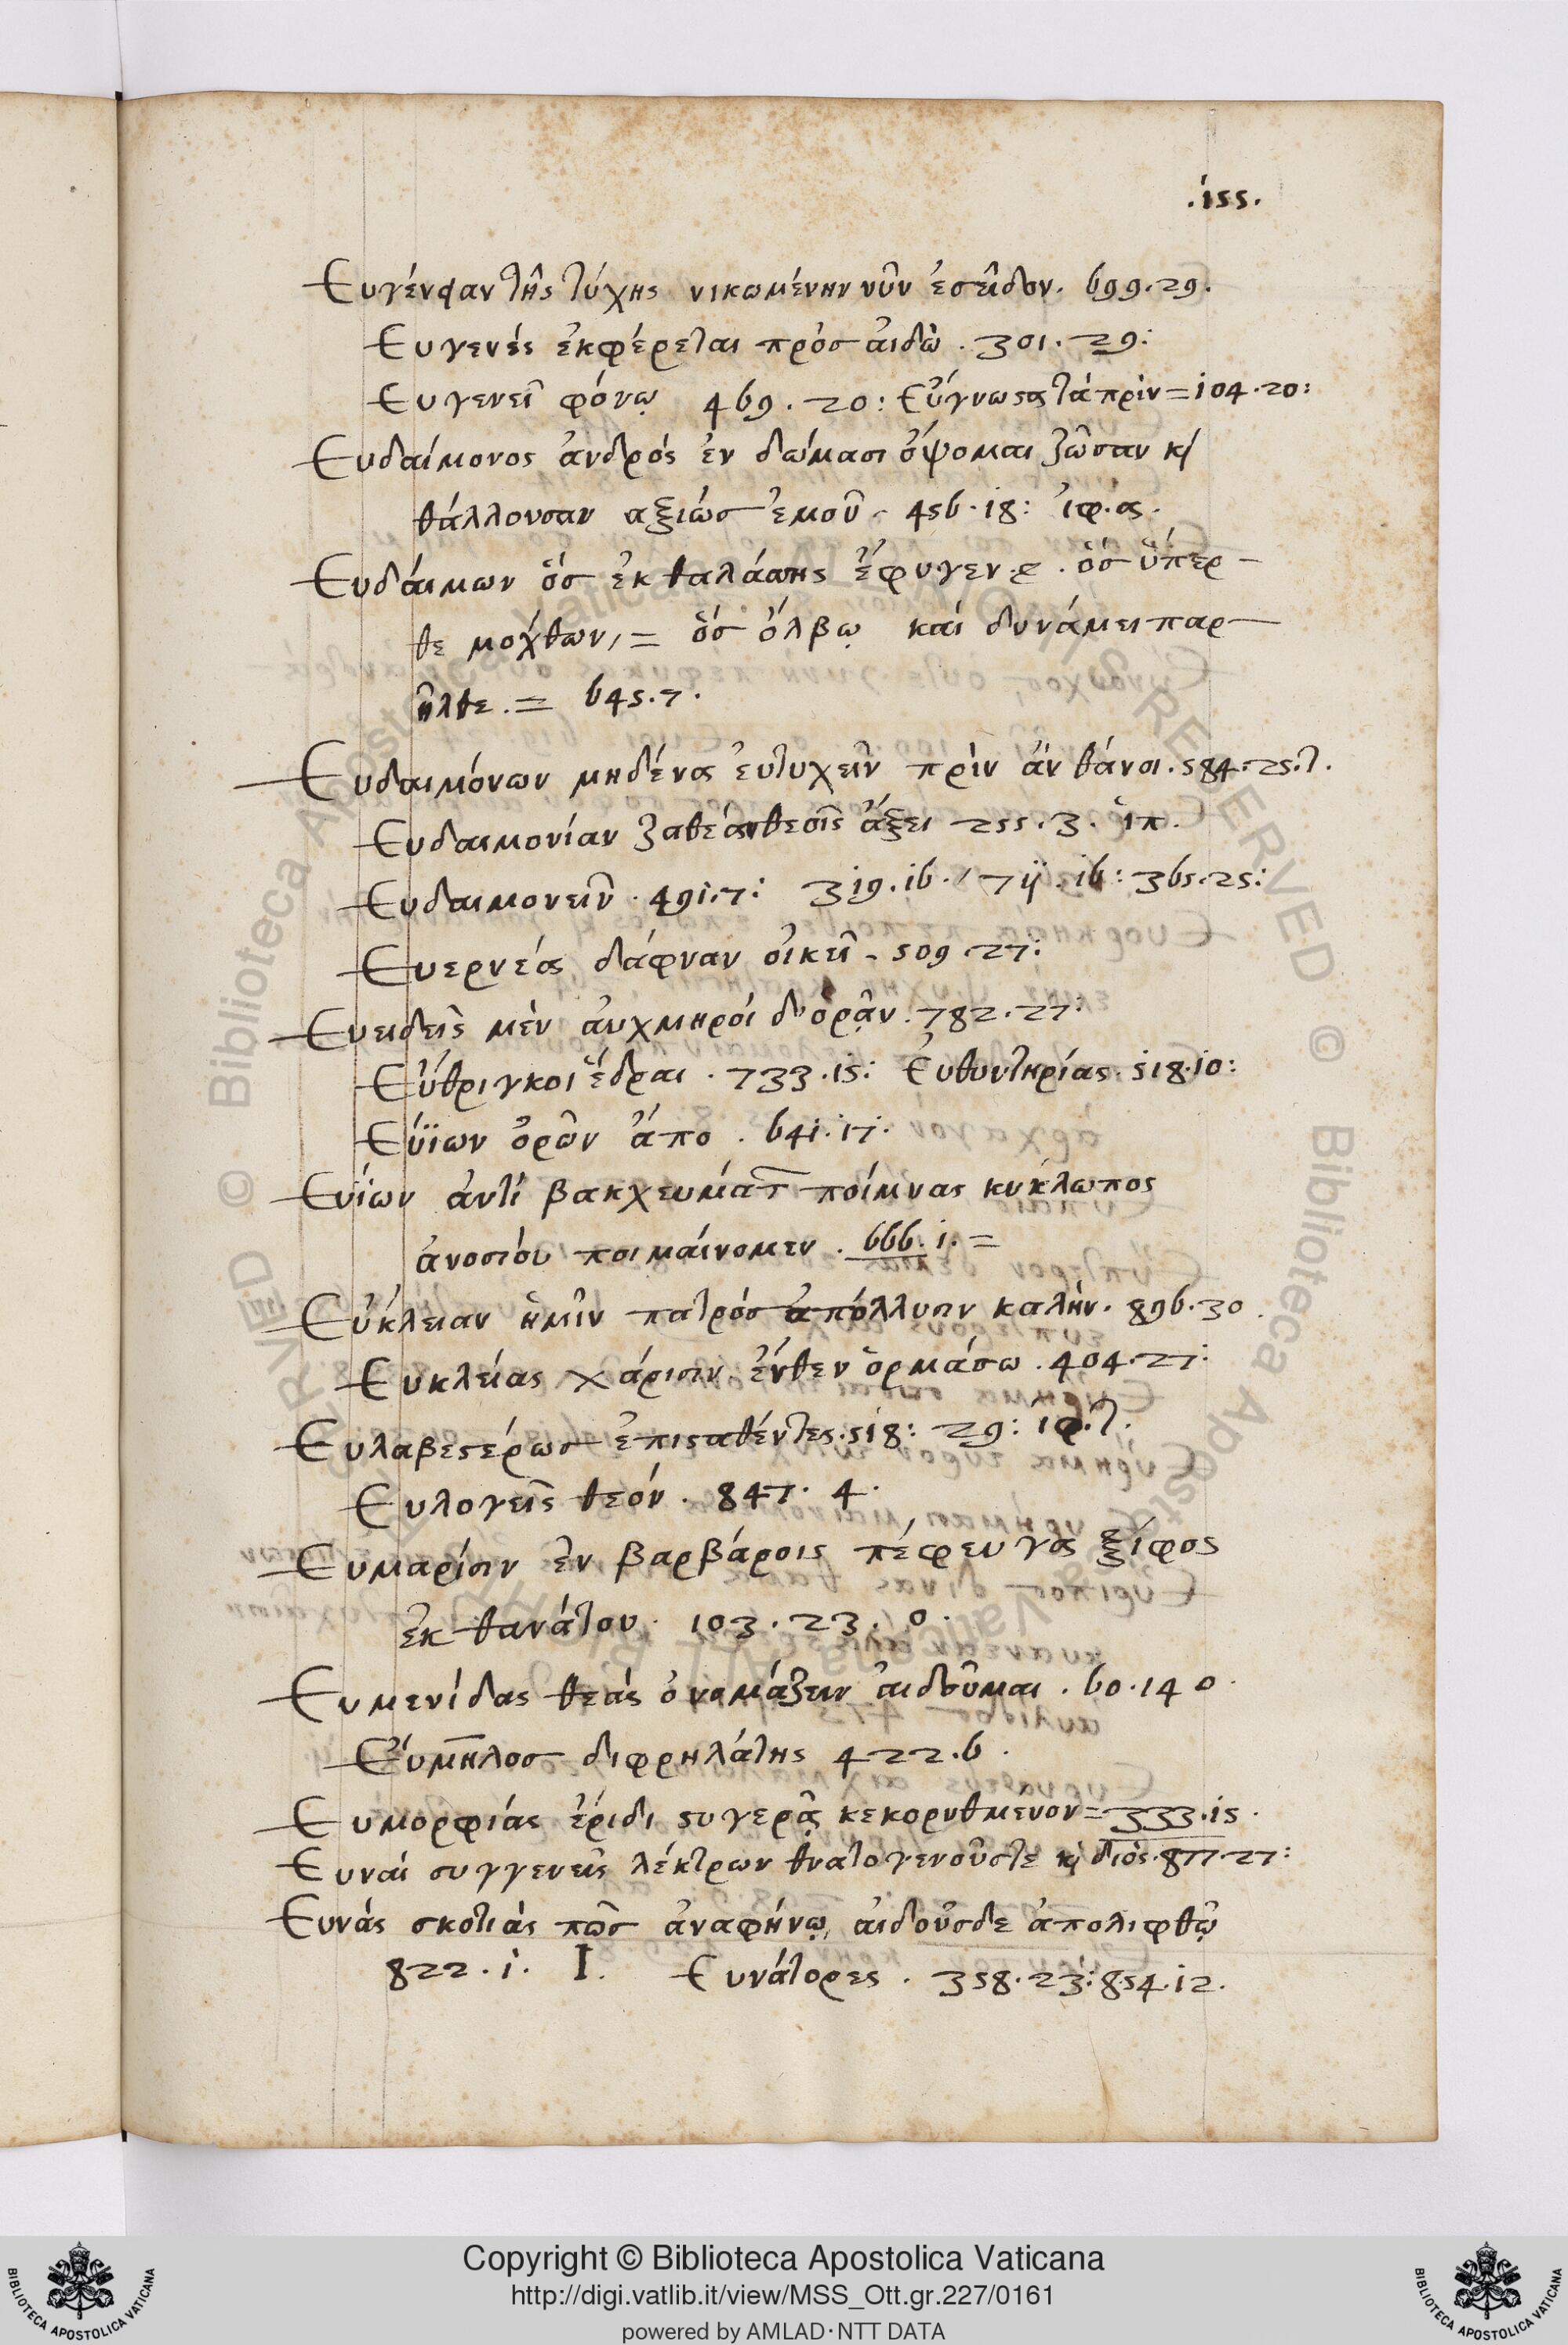 .iss.
Ευγένειαν τῆς τύχης νικωμένην νῦν ἐσεῖδον. 699.29.
Ευγενές ἐκφέρεται πρὸσ ἀιδὼ . 301. 29:
Ευγενεῖ φόνῳ 469. 20: Εὔγνωςας τὰ πρὶν = 104.20:
Ευδαίμονος ἀνδρός ἐν δώμασι ὄψομαι ζῶσαν κὶ
θάλλουσαν αξιώσ ἐμοῦ. 456.18: ἰφ.α.
Ευδάιμων ὅσ ἐκ θαλάσσης ἔφυγεν . ὅσ ὕπερ-
θε μοχθων, = ὅσ ὄλβῳ καί δυνάμει παρ-
ῆλθε. = 645.7.
Ευδαιμόνων μηδένα ἐυτυχεῖν πρὶν ἄν θάνοι. 584.25.τ.
Ευδαιμονίαν ζαθέαν θεοῖς ἄξει 255.3. ἱπ.
Ευδαιμονεῖν. 491.7: 319.16. 711.16: 365.25:
Ευερνέα δάφναν ὀικεῖ. 509.27:
Ευειδεῖς μὲν ἀυχμηροί δ' ὁρᾷν. 782.27:
Εὔθριγκοι ἕδραι . 733.15: Ἐυθυντηρίας. 518.10:
Εὐίων ὀρῶν ἄπο . 641.17.
Ευΐων ἀντί βακχευμάτ ποίμνας κύκλωπος
ἀνοσίου ποιμάινομεν . 666.1. =
Εὔκλειαν ἡμῖν πατρόσ ἀπόλλυσιν καλήν. 896.30.
Ευκλείας χάρισιν ἔνθεν ὁρμάσω . 404.27:
Ευλαβεςέρωσ ἐπιςαθέντες. 518: 29: ἰφ.τ.
Ευλογεῖς θεόν . 847. 4.
Ευμαρίσιν ἐν βαρβάροις πέφευγα ξίφος
ἐκ θανάτου . 103. 23. ο.
Ευμενίδας θεάς ὀνομάζειν ἀιδοῦμαι . 60.14 ο.
Εὔμηλοσ διφρηλάτης 422.6.
Ευμορφίας ἔριδι ςυγερᾶς κεκορυθμένον = 333.15.
Ευναί συγγενεῖς λέκτρων θνατογενοῦστε κὶ διὸς. 877.27:
Ευνάς σκοτιάς πῶσ ἀναφήνῳ, ἀιδοῦσδε ἀπολιφθῶ
822. i. I. Ευνάτορες . 358.23: 854.12.
Copyright © Biblioteca Apostolica Vaticana
http://digi.vatlib.it/view/MSS_Ott.gr.227/0161
powered by AMLAD·NTT DATA